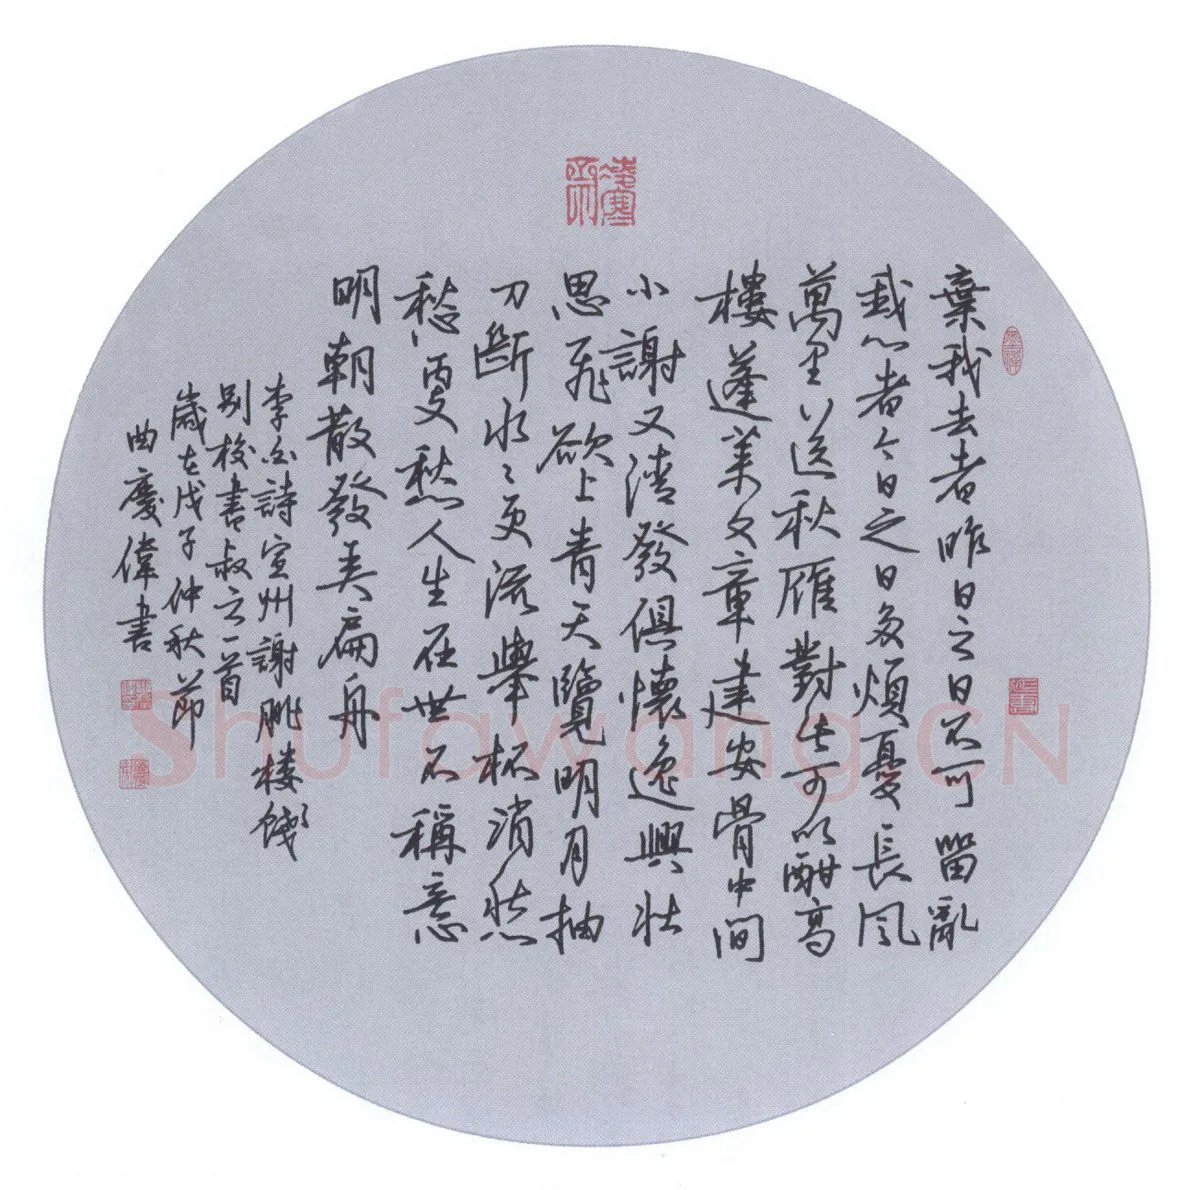 棄我去者昨日之日不可留亂
我心者今日之日多煩憂長風
萬里送秋雁對此可以酣高
樓蓬萊文章建安骨中間
小謝又清發俱懷逸興壯
思飛欲上青天覽明月抽
刀斷水々更流舉杯消愁
愁更愁人生在世不稱意
明朝散發弄扁舟
李白詩宣州謝朓楼餞
别校書叔云一首
歲在戊子仲秋節
曲慶偉書
Shufawang.CN